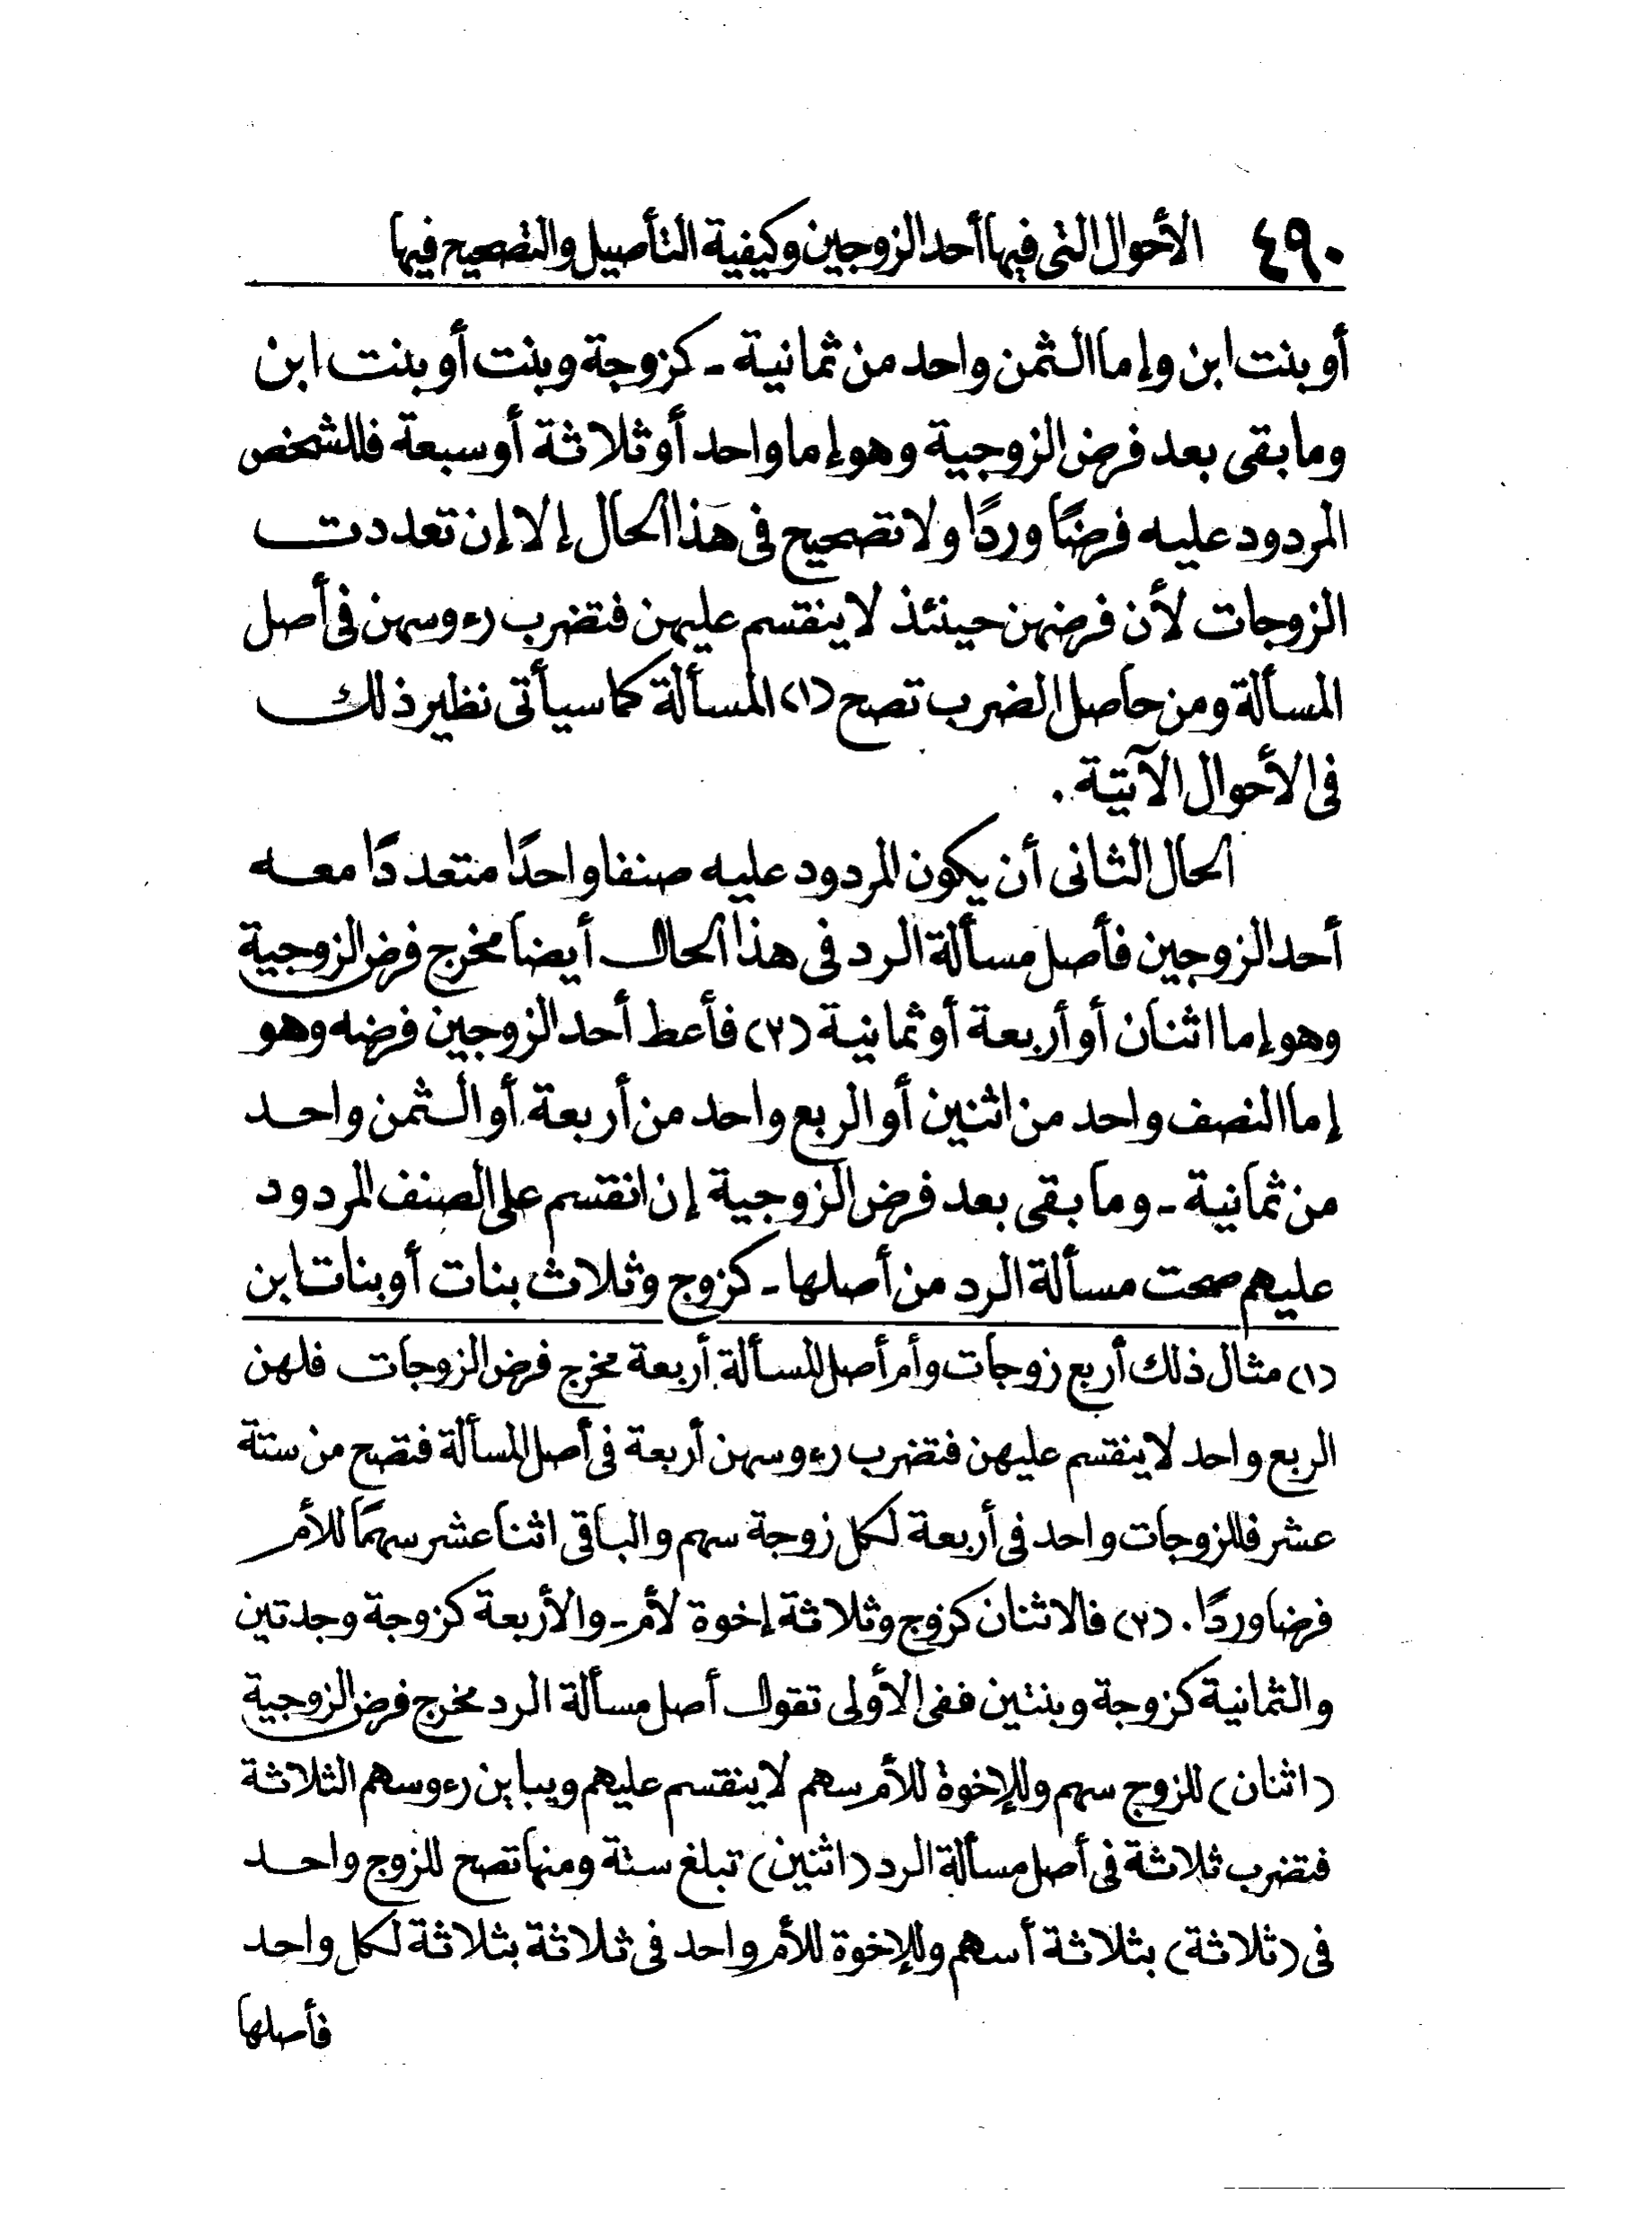 ٤٩٠ الأحوال التى فيها أحد الزوجين وكيفية التأصيل والتصحيح فيها
أو بنت ابن وإما الثمن واحد من ثمانية - كزوجة وبنت أو بنت ابن
وما بقى بعد فرض الزوجية وهو إما واحد أو ثلاثة أو سبعة فللشخص
المردود عليه فرضًا وردًا ولا تصحيح فى هذا الحال إلا إن تعددت
الزوجات لأن فرضهن حينئذ لا ينقسم عليهن فتضرب رءوسهن فى أصل
المسألة ومن حاصل الضرب تصح (١) المسألة كما سيأتى نظير ذلك
فى الأحوال الآتية .
الحال الثانى أن يكون المردود عليه صنفا واحدًا متعددًا معه
أحد الزوجين فأصل مسألة الرد فى هذا الحال أيضا مخرج فرض الزوجية
وهو إما اثنان أو أربعة أو ثمانية (٢) فأعط أحد الزوجين فرضه وهو
إما النصف واحد من اثنين أو الربع واحد من أربعة أو الثمن واحد
من ثمانية - وما بقى بعد فرض الزوجية إن انقسم على الصنف المردود
عليهم صحت مسألة الرد من أصلها - كزوج وثلاث بنات أو بنات ابن
(١) مثال ذلك أربع زوجات وأم أصل المسألة أربعة مخرج فرض الزوجات فلهن
الربع واحد لا ينقسم عليهن فتضرب رءوسهن أربعة فى أصل المسألة فتصح من ستة
عشر فللزوجات واحد فى أربعة لكل زوجة سهم والباقى اثنا عشر سهمًا للأم
فرضا وردًا . (٢) فالاثنان كزوج وثلاثة إخوة لأم - والأربعة كزوجة وجدتين
والثمانية كزوجة وبنتين ففى الأولى تقول أصل مسألة الرد مخرج فرض الزوجية
(اثنان) للزوج سهم وللإخوة للأم سهم لا ينقسم عليهم ويباين رءوسهم الثلاثة
فتضرب ثلاثة فى أصل مسألة الرد (اثنين) تبلغ ستة ومنها تصح للزوج واحد
فى (ثلاثة) بثلاثة أسهم وللإخوة للأم واحد فى ثلاثة بثلاثة لكل واحد
فأصلها